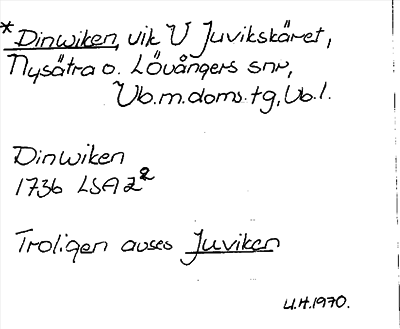 *Dinwiken, vik V Juvikskäret,
Nysätra o. Lövångers snr,
Vb.m.doms.tg, Vb.l.
Dinwiken
1736 LSA Z²
Troligen avses Juviken
U.H.1970.